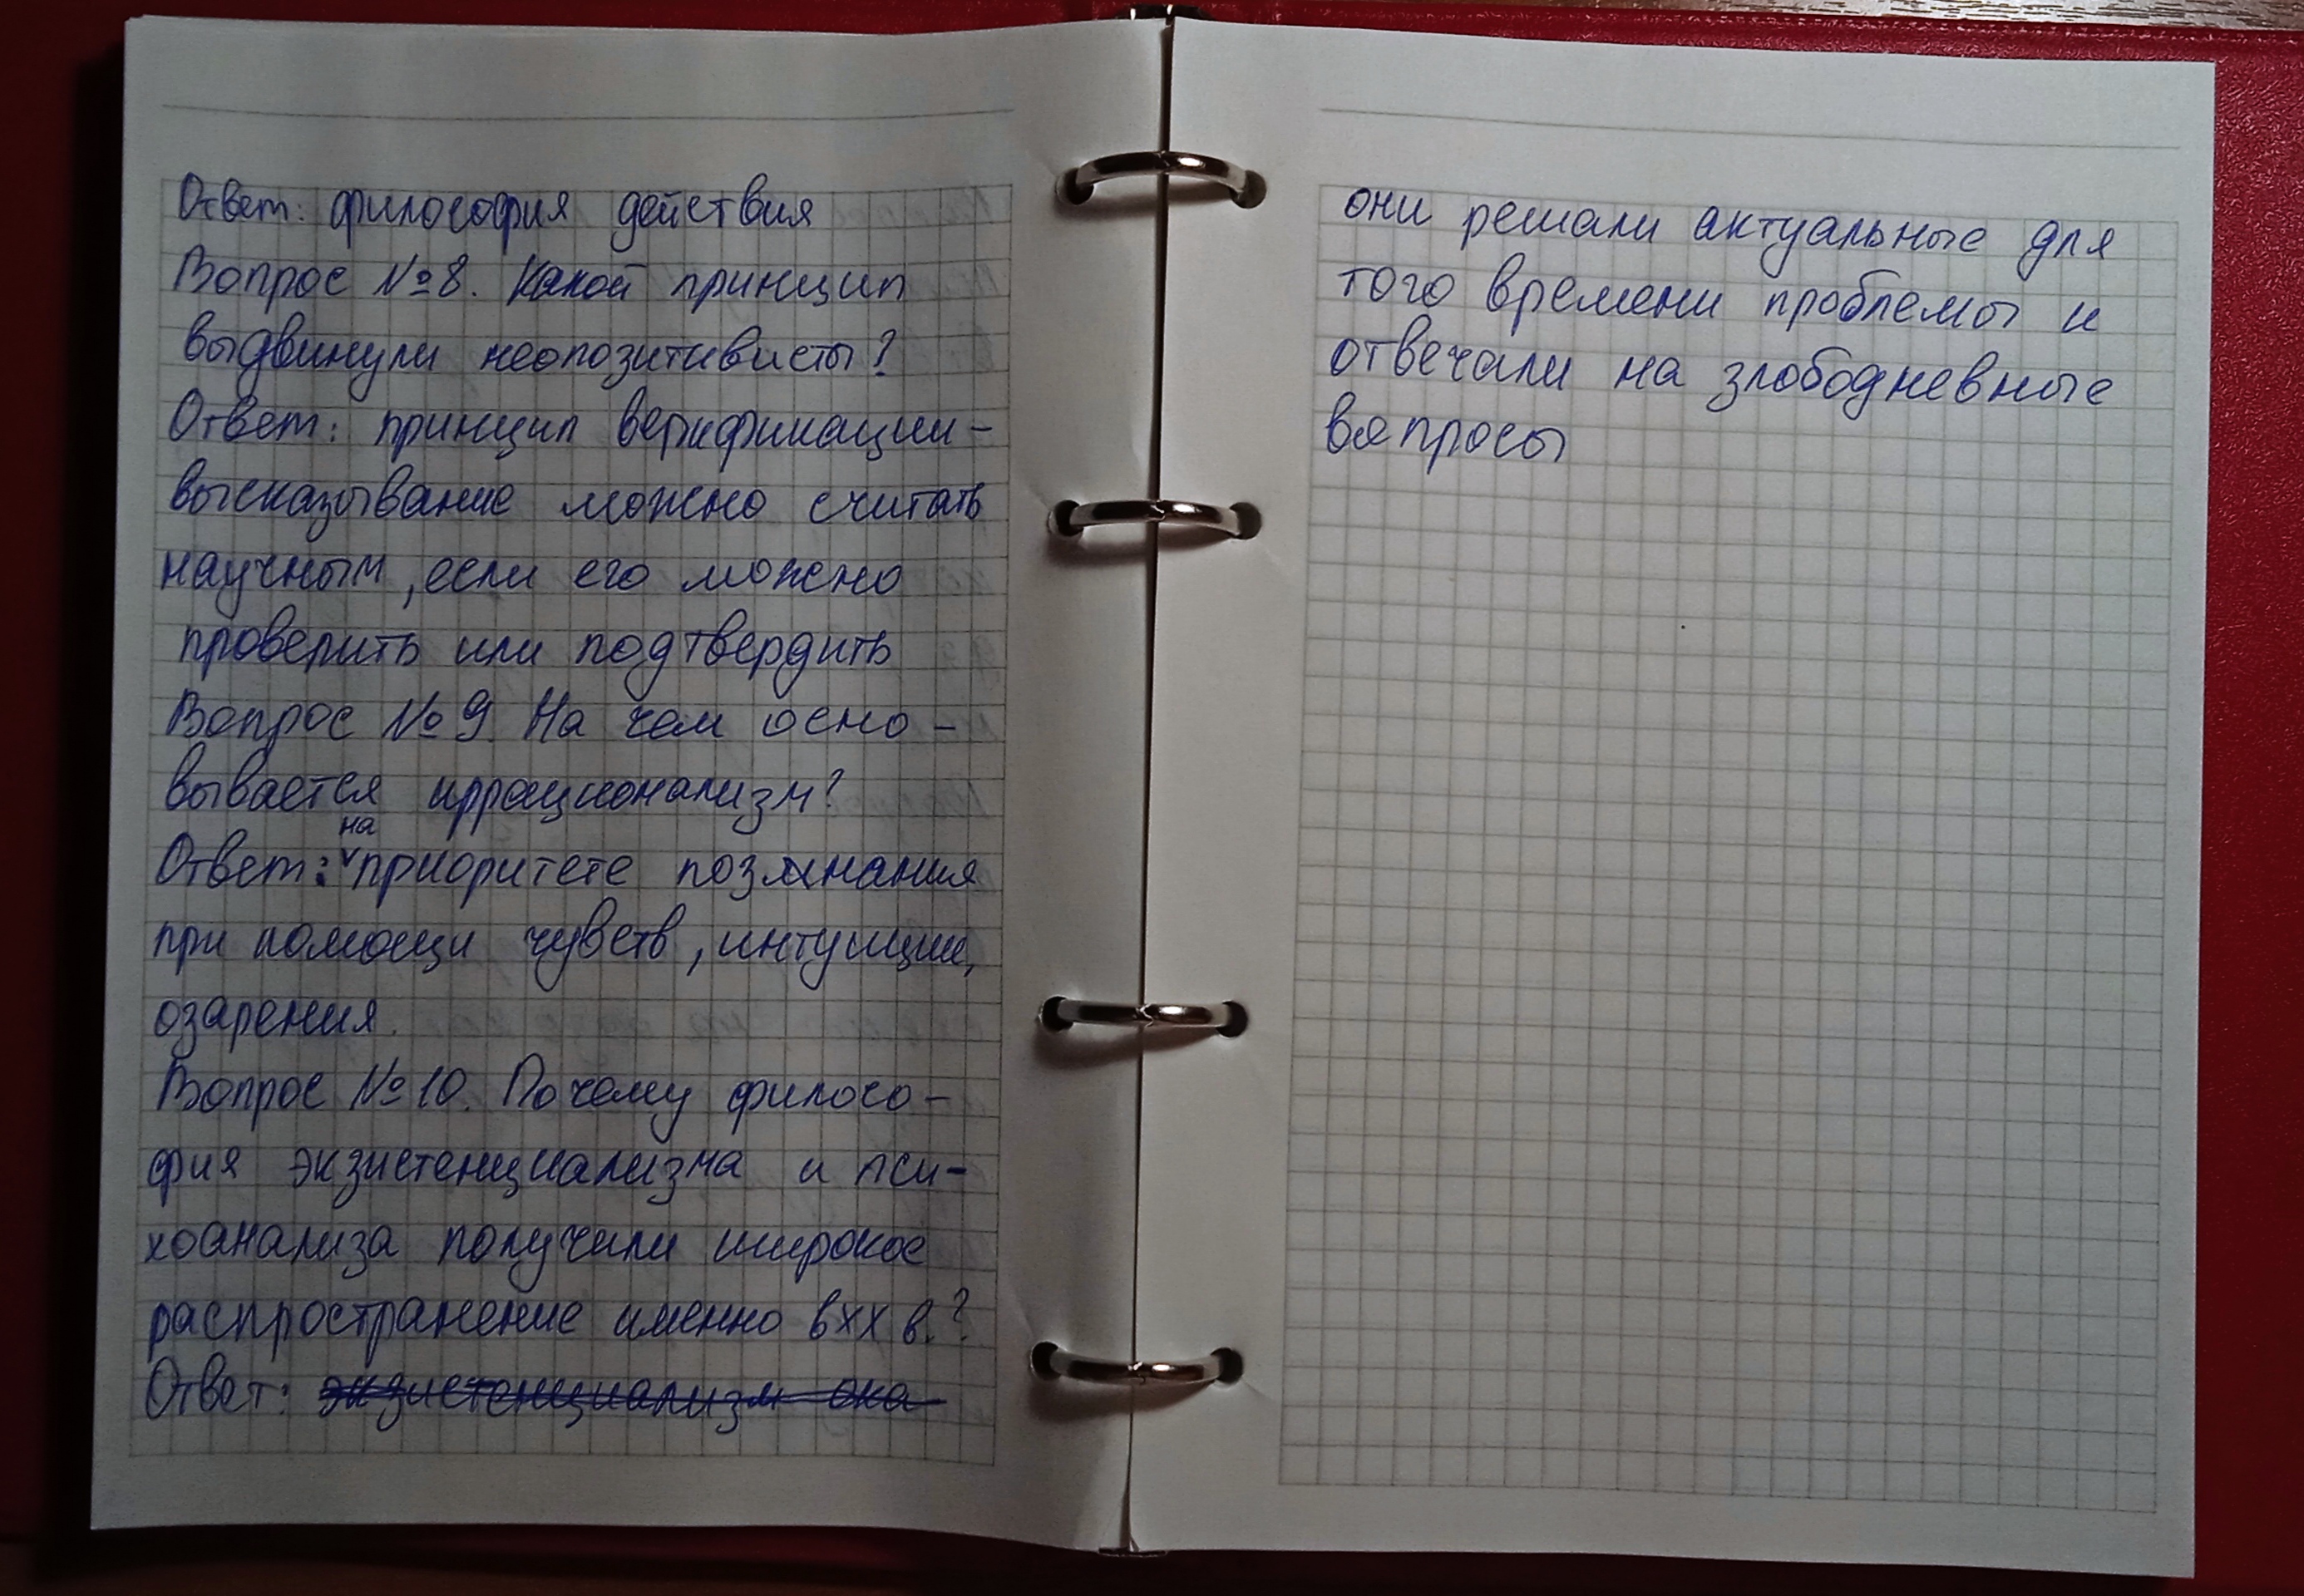 Ответ: философия действия
Вопрос №8. Какой принцип
выдвинули неопозитивисты?
Ответ: принцип верификации -
высказывание можно считать
научным, если его можно
проверить или подтвердить
Вопрос №9. На чем осно -
вывается иррационализм?
на
Ответ: приоритете познания
при помощи чувств, интуиции,
озарения.
Вопрос №10. Почему филосо -
фия экзистенциализма и пси-
хоанализа получили широкое
распространение именно в XX в.?
Ответ: экзистенциализм ока-
они решали актуальные для
того времени проблемы и
отвечали на злободневные
вопросы